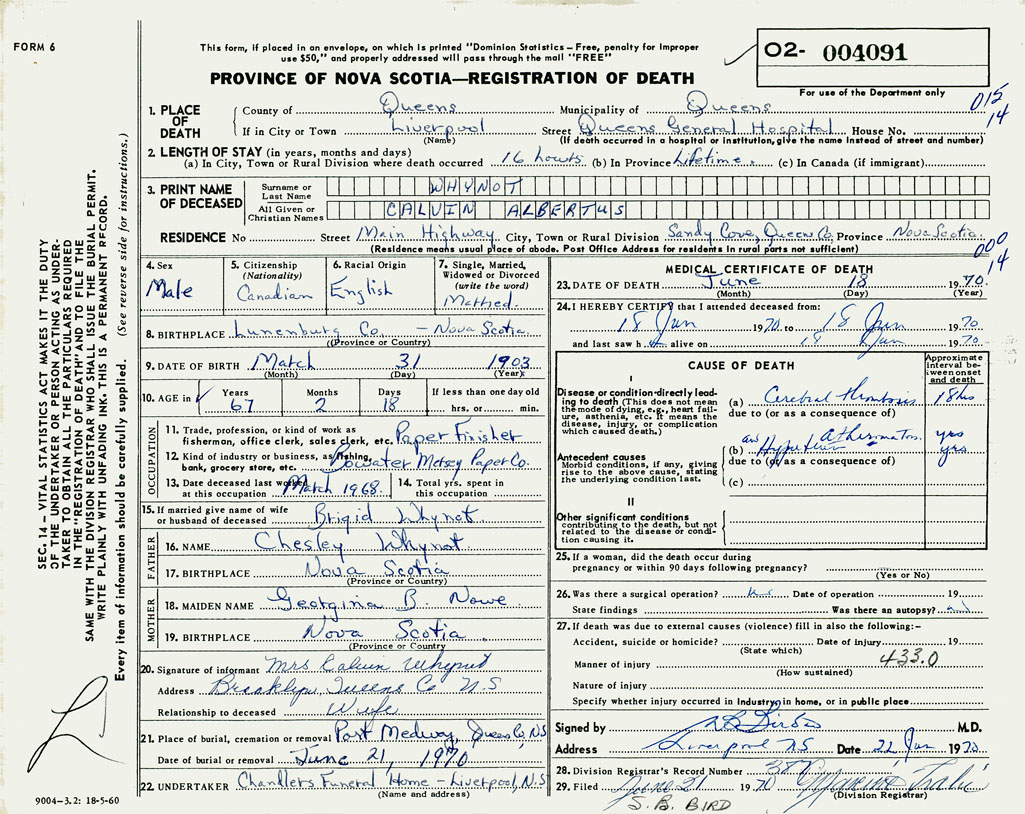 FORM 6
This form, if placed in an envelope, on which is printed "Dominion Statistics – Free, penalty for improper
use $50," and properly addressed will pass through the mail "FREE"
PROVINCE OF NOVA SCOTIA—REGISTRATION OF DEATH
O2- 004091
For use of the Department only
015
14
1. PLACE OF DEATH
County of Queens Municipality of Queens
If in City or Town Liverpool Street Queens General Hospital House No.
(Name) (If death occurred in a hospital or institution, give the name instead of street and number)
2. LENGTH OF STAY (in years, months and days)
(a) In City, Town or Rural Division where death occurred 16 hours (b) In Province Lifetime (c) In Canada (if immigrant)
3. PRINT NAME OF DECEASED
Surname or Last Name WHYNOT
All Given or Christian Names CALVIN ALBERTUS
RESIDENCE No Street Main Highway City, Town or Rural Division Sandy Cove, Queens Co. Province Nova Scotia
(Residence means usual place of abode. Post Office Address for residents in rural parts not sufficient)
000
14
4. Sex
Male
5. Citizenship
(Nationality)
Canadian
6. Racial Origin
English
7. Single, Married,
Widowed or Divorced
(write the word)
Married.
8. BIRTHPLACE Lunenburg Co. – Nova Scotia
(Province or Country)
9. DATE OF BIRTH March 31 1903
(Month) (Day) (Year)
10. AGE in
Years Months Days If less than one day old
67 2 18 hrs. or min.
OCCUPATION
11. Trade, profession, or kind of work as
fisherman, office clerk, sales clerk, etc. Paper Finisher
12. Kind of industry or business, as fishing,
bank, grocery store, etc. Bowater Mersey Paper Co.
13. Date deceased last worked
at this occupation March 1968
14. Total yrs. spent in
this occupation
15. If married give name of wife
or husband of deceased Brigid Whynot
FATHER
16. NAME Chesley Whynot
17. BIRTHPLACE Nova Scotia
(Province or Country)
MOTHER
18. MAIDEN NAME Georgina B. Nowe
19. BIRTHPLACE Nova Scotia
(Province or Country
20. Signature of informant Mrs Calvin Whynot
Address Brooklyn, Queens Co N.S
Relationship to deceased Wife
21. Place of burial, cremation or removal Port Medway, Queens Co, N.S
Date of burial or removal June 21, 1970
22. UNDERTAKER Chandlers Funeral Home – Liverpool, N.S
(Name and address)
MEDICAL CERTIFICATE OF DEATH
23. DATE OF DEATH June 18 1970
(Month) (Day) (Year)
24. I HEREBY CERTIFY that I attended deceased from:
18 Jun 1970 to 18 Jun 1970
and last saw h alive on 18 Jun 1970
CAUSE OF DEATH
Approximate
interval be-
tween onset
and death
I
Disease or condition directly lead-
ing to death (This does not mean
the mode of dying, e.g., heart fail-
ure, asthenia, etc. It means the
disease, injury, or complication
which caused death.)
(a) Cerebral thrombosis 18 hrs
due to (or as a consequence of)
Antecedent causes
Morbid conditions, if any, giving
rise to the above cause, stating
the underlying condition last.
and yrs
(b) yrs
due to (or as a consequence of)
(c)
II
Other significant conditions
contributing to the death, but not
related to the disease or condi-
tion causing it.
25. If a woman, did the death occur during
pregnancy or within 90 days following pregnancy?
(Yes or No)
26. Was there a surgical operation? Date of operation 19
State findings Was there an autopsy?
27. If death was due to external causes (violence) fill in also the following:-
Accident, suicide or homicide? Date of injury 19
(State which)
433.0
Manner of injury
(How sustained)
Nature of injury
Specify whether injury occurred in Industry, in home, or in public place
Signed by S B Bird M.D.
Address Liverpool NS Date 22 Jun 1970
28. Division Registrar's Record Number
29. Filed June 21 1970
(Division Registrar)
S. B. BIRD
SEC. 14 – VITAL STATISTICS ACT MAKES IT THE DUTY
OF THE UNDERTAKER OR PERSON ACTING AS UNDER-
TAKER TO OBTAIN ALL THE PARTICULARS REQUIRED
IN THE "REGISTRATION OF DEATH" AND TO FILE THE
SAME WITH THE DIVISION REGISTRAR WHO SHALL ISSUE THE BURIAL PERMIT.
WRITE PLAINLY WITH UNFADING INK. THIS IS A PERMANENT RECORD.
Every item of information should be carefully supplied. (See reverse side for instructions.)
9004-3.2: 18-5-60